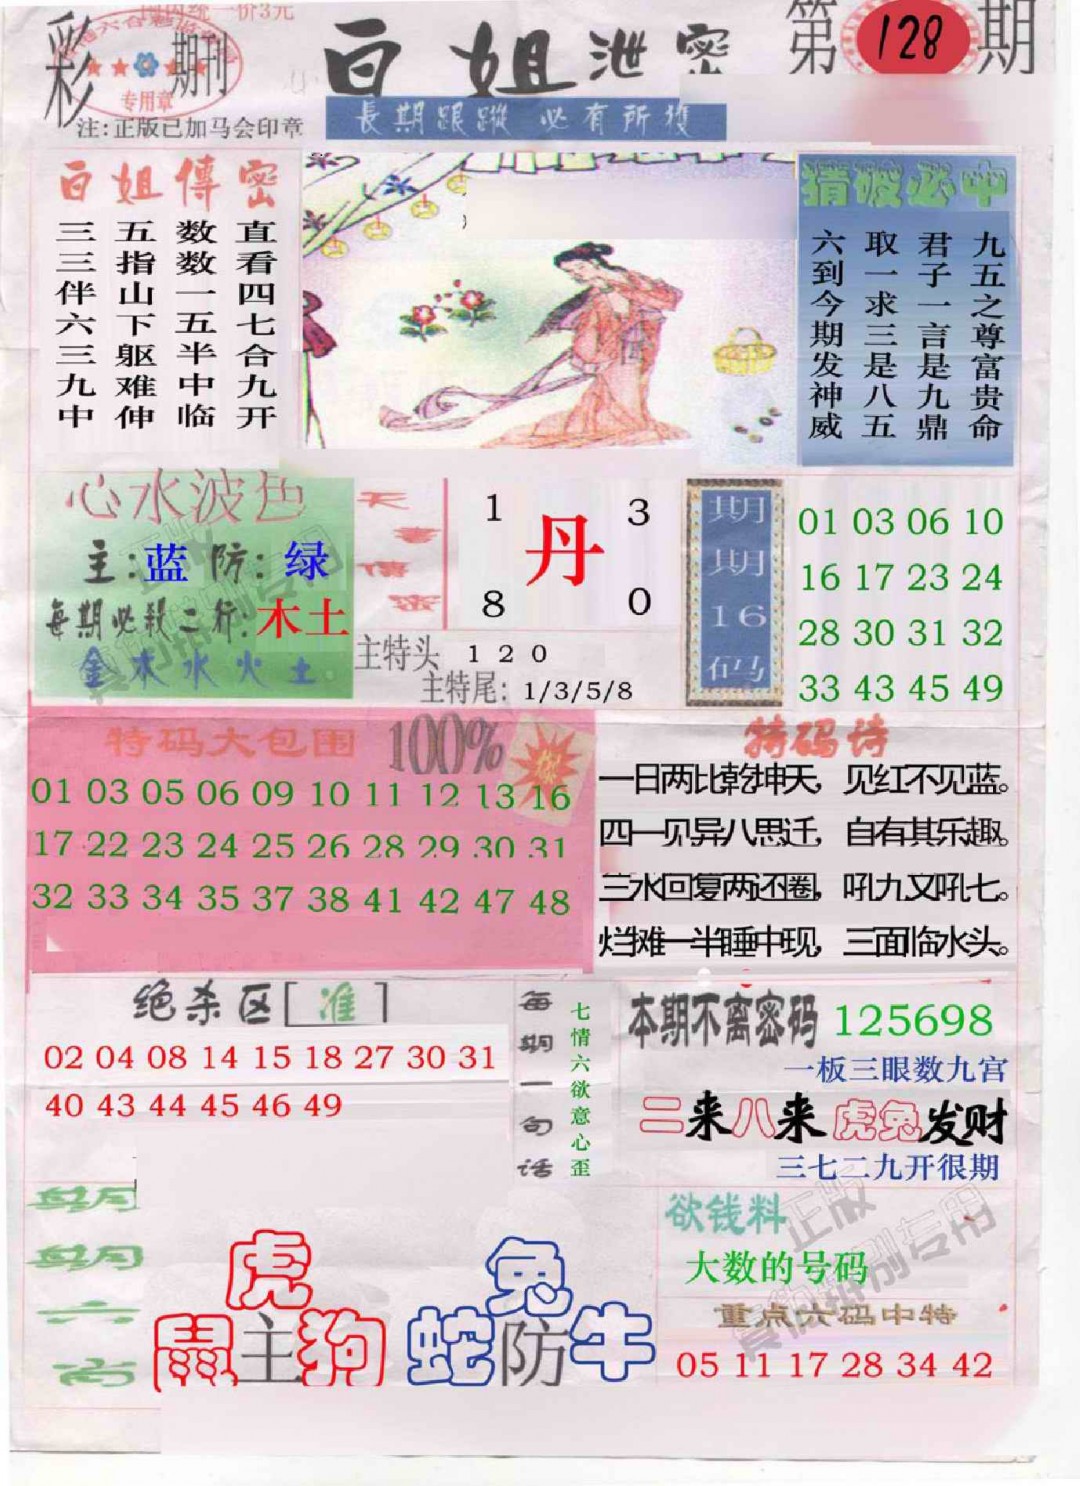 国内统一价3元
彩 期刊
专用章
注:正版已加马会印章
白姐泄密
第 128 期
長期跟蹤 必有所獲
白姐傳密
直看四七合九开
数数一五半中临
五指山下躯难伸
三三伴六三九中
猜破必中
九五之尊富贵命
君子一言是九鼎
取一求三是八五
六到今期发神威
心水波色
主:蓝 防:绿
每期必殺二行:木土
金木水火土
天書傳密
1 3
丹
8 0
主特头 1 2 0
主特尾: 1/3/5/8
期期16码
01 03 06 10
16 17 23 24
28 30 31 32
33 43 45 49
特码大包围 100%
01 03 05 06 09 10 11 12 13 16
17 22 23 24 25 26 28 29 30 31
32 33 34 35 37 38 41 42 47 48
特码诗
一日两比乾坤天，见红不见蓝。
四一见异八思迁，自有其乐趣。
三水回复两还圈，吼九又吼七。
烂摊一半睡中现，三面临水头。
绝杀区[准]
02 04 08 14 15 18 27 30 31
40 43 44 45 46 49
每期一句话
七情六欲意心歪
本期不离密码 125698
一板三眼数九宫
二来八来虎兔发财
三七二九开很期
虎
鼠主狗
兔
蛇防牛
欲钱料
大数的号码
重点六码中特
05 11 17 28 34 42